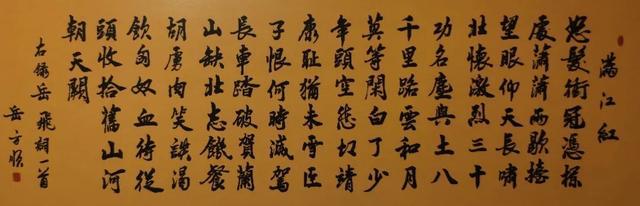 滿江紅
怒髮衝冠憑欄
處瀟瀟雨歇擡
望眼仰天長嘯
壯懷激烈三十
功名塵與土八
千里路雲和月
莫等閑白了少
年頭空悲切靖
康恥猶未雪臣
子恨何時滅駕
長車踏破賀蘭
山缺壯志饑餐
胡虜肉笑談渴
飲匈奴血待從
頭收拾舊山河
朝天闕
右錄岳飛詞一首
岳方